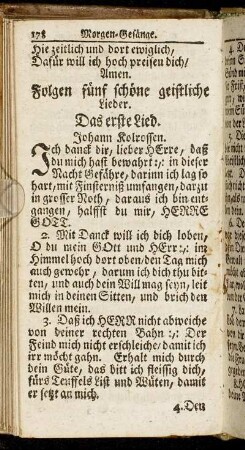 178 Morgen-Gesänge.
Hie zeitlich und dort ewiglich,
Dafür will ich hoch preisen dich/
Amen.
Folgen fünf schöne geistliche
Lieder.
Das erste Lied.
Johann Kolrossen.
Ich danck dir, lieber HErre, daß
du mich hast bewahrt :,: in dieser
Nacht Gefähre, darinn ich lag so
hart, mit Finsterniß umfangen, darzu
in grosser Noth, daraus ich bin ent-
gangen, halffst du mir, HERRE
GOTT.
2. Mit Danck will ich dich loben,
O du mein GOtt und HErr :,: in
Himmel hoch dort oben, den Tag mich
auch gewehr, darum ich dich thu bit-
ten, und auch dein Will mag seyn, leit
mich in deinen Sitten, und brich den
Willen mein.
3. Daß ich HERR nicht abweiche
von deiner rechten Bahn :,: Der
Feind mich nicht erschleiche/ damit ich
irr möcht gahn. Erhalt mich durch
dein Güte, das bitt ich fleissig dich,
fürs Teuffels List und Wüten, damit
er setzt an mich.
4. Den